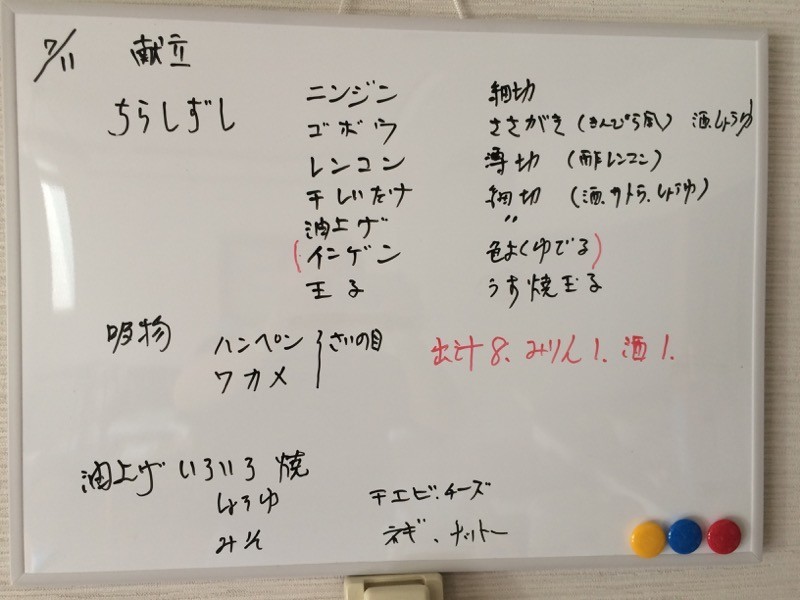 7/11 献立
ちらしずし ニンジン 細切
ゴボウ ささがき (きんぴら風) 酒、しょうゆ
レンコン 薄切 (酢レンコン)
干しいたけ 細切 (酒、サトウ、しょうゆ)
油上げ 〃
(インゲン 色よくゆでる)
玉子 うす焼玉子
吸物 ハンペン さいの目
ワカメ
出汁8、みりん1、酒1.
油上げいろいろ焼
しょうゆ 干エビ、チーズ
みそ ネギ、ナットー